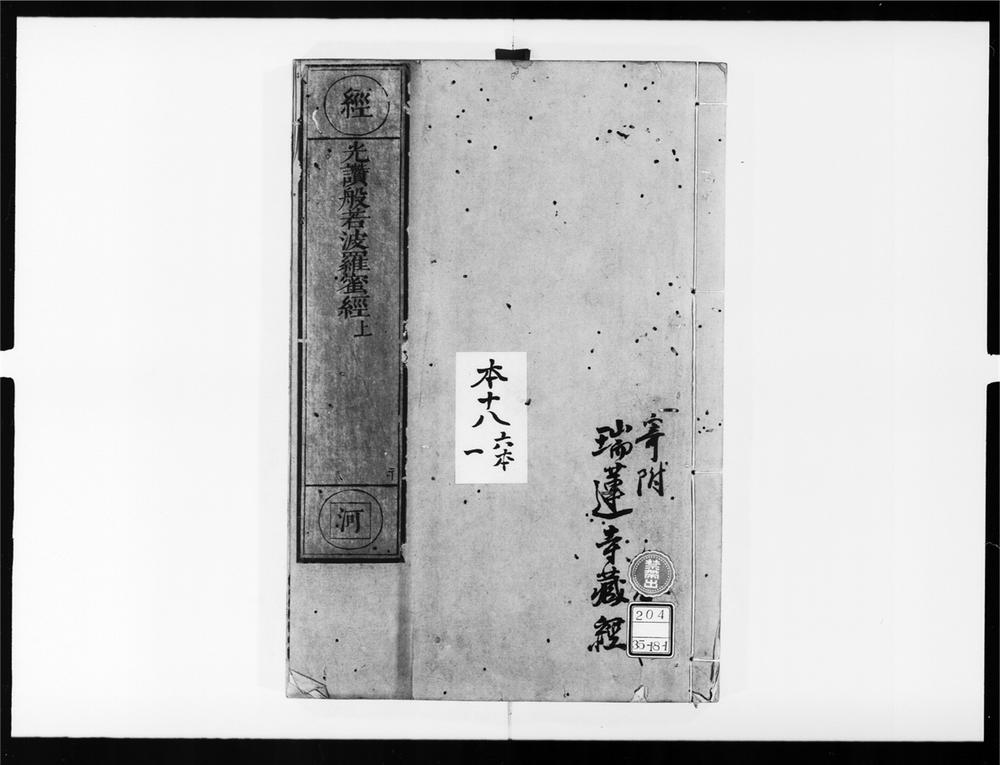 經
光讚般若波羅蜜經上
河
本十八
六本
一
寄附
瑞蓮寺藏經
禁帶出
204
35-18-1